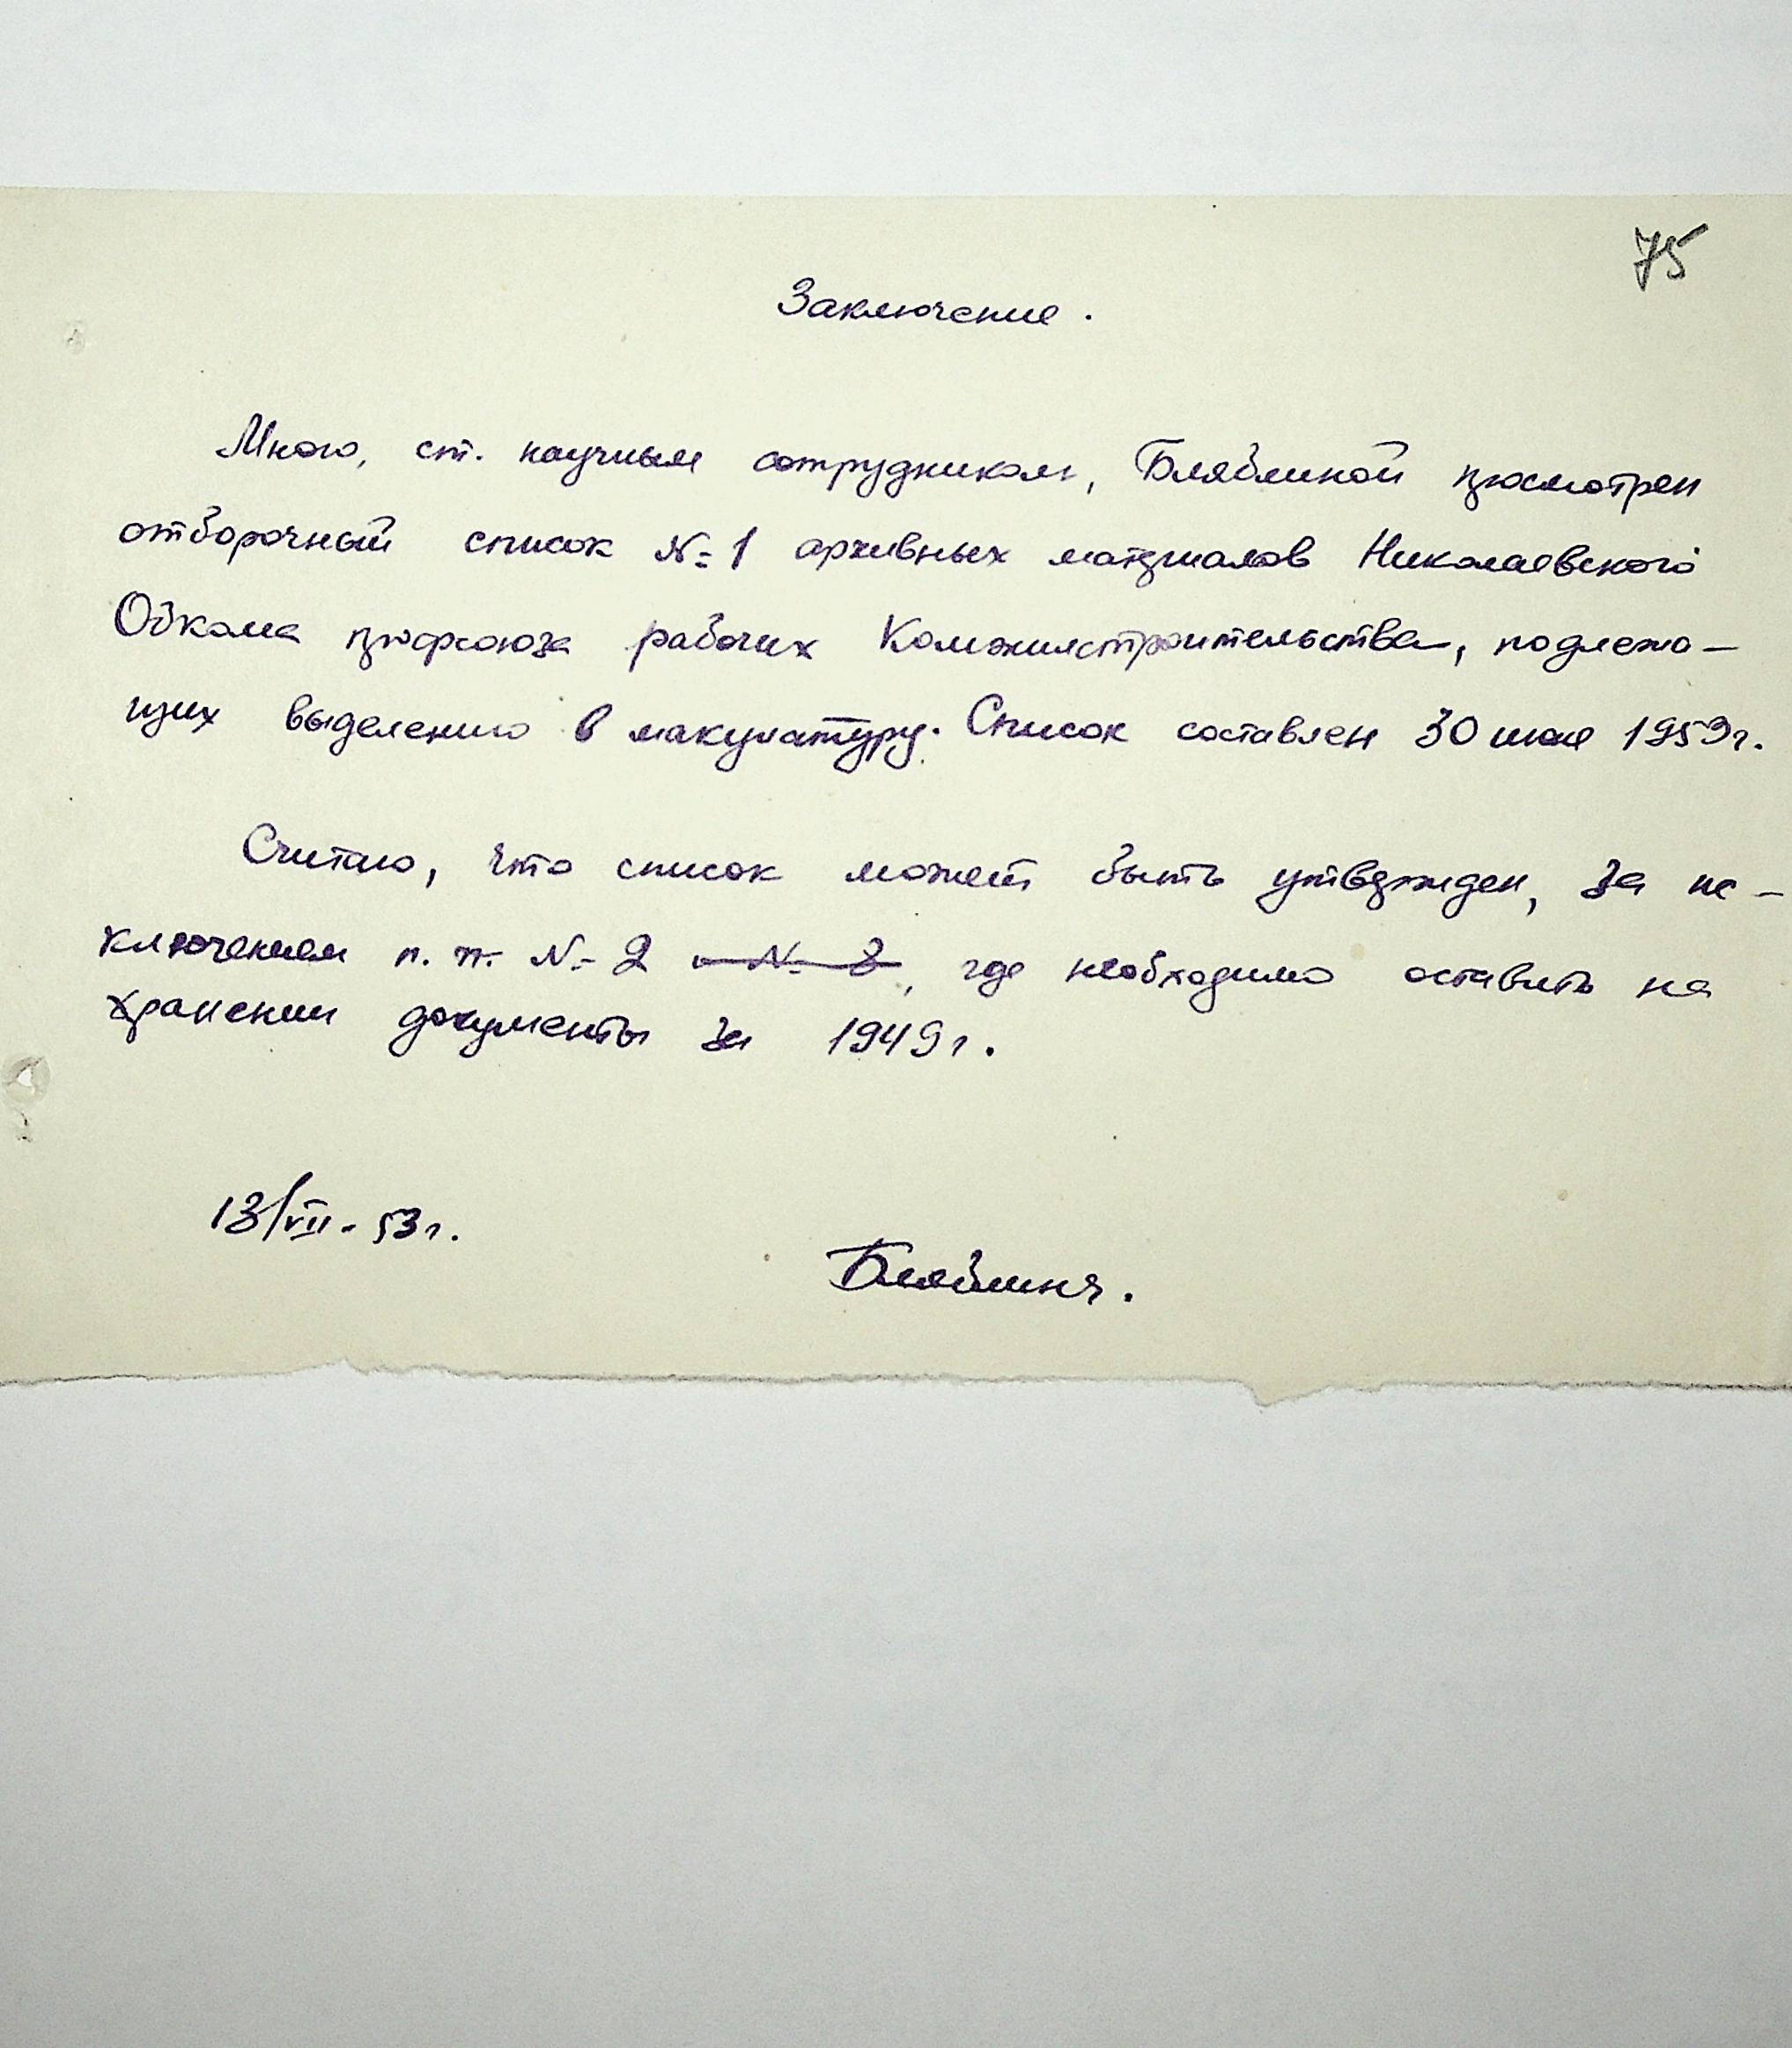 75
Заключение.
Мною, ст. научным сотрудником, Бляблиной просмотрен
отборочный список № 1 архивных материалов Николаевского
Обкома профсоюза рабочих Комжилстроительства, подлежа-
щих выделению в макулатуру. Список составлен 30 мая 1953г.
Считаю, что список может быть утвержден, за ис-
ключением п. п. № 2 и № 3, где необходимо оставить на
хранении документы за 1949г.
13/VII-53г.
Бляблина.